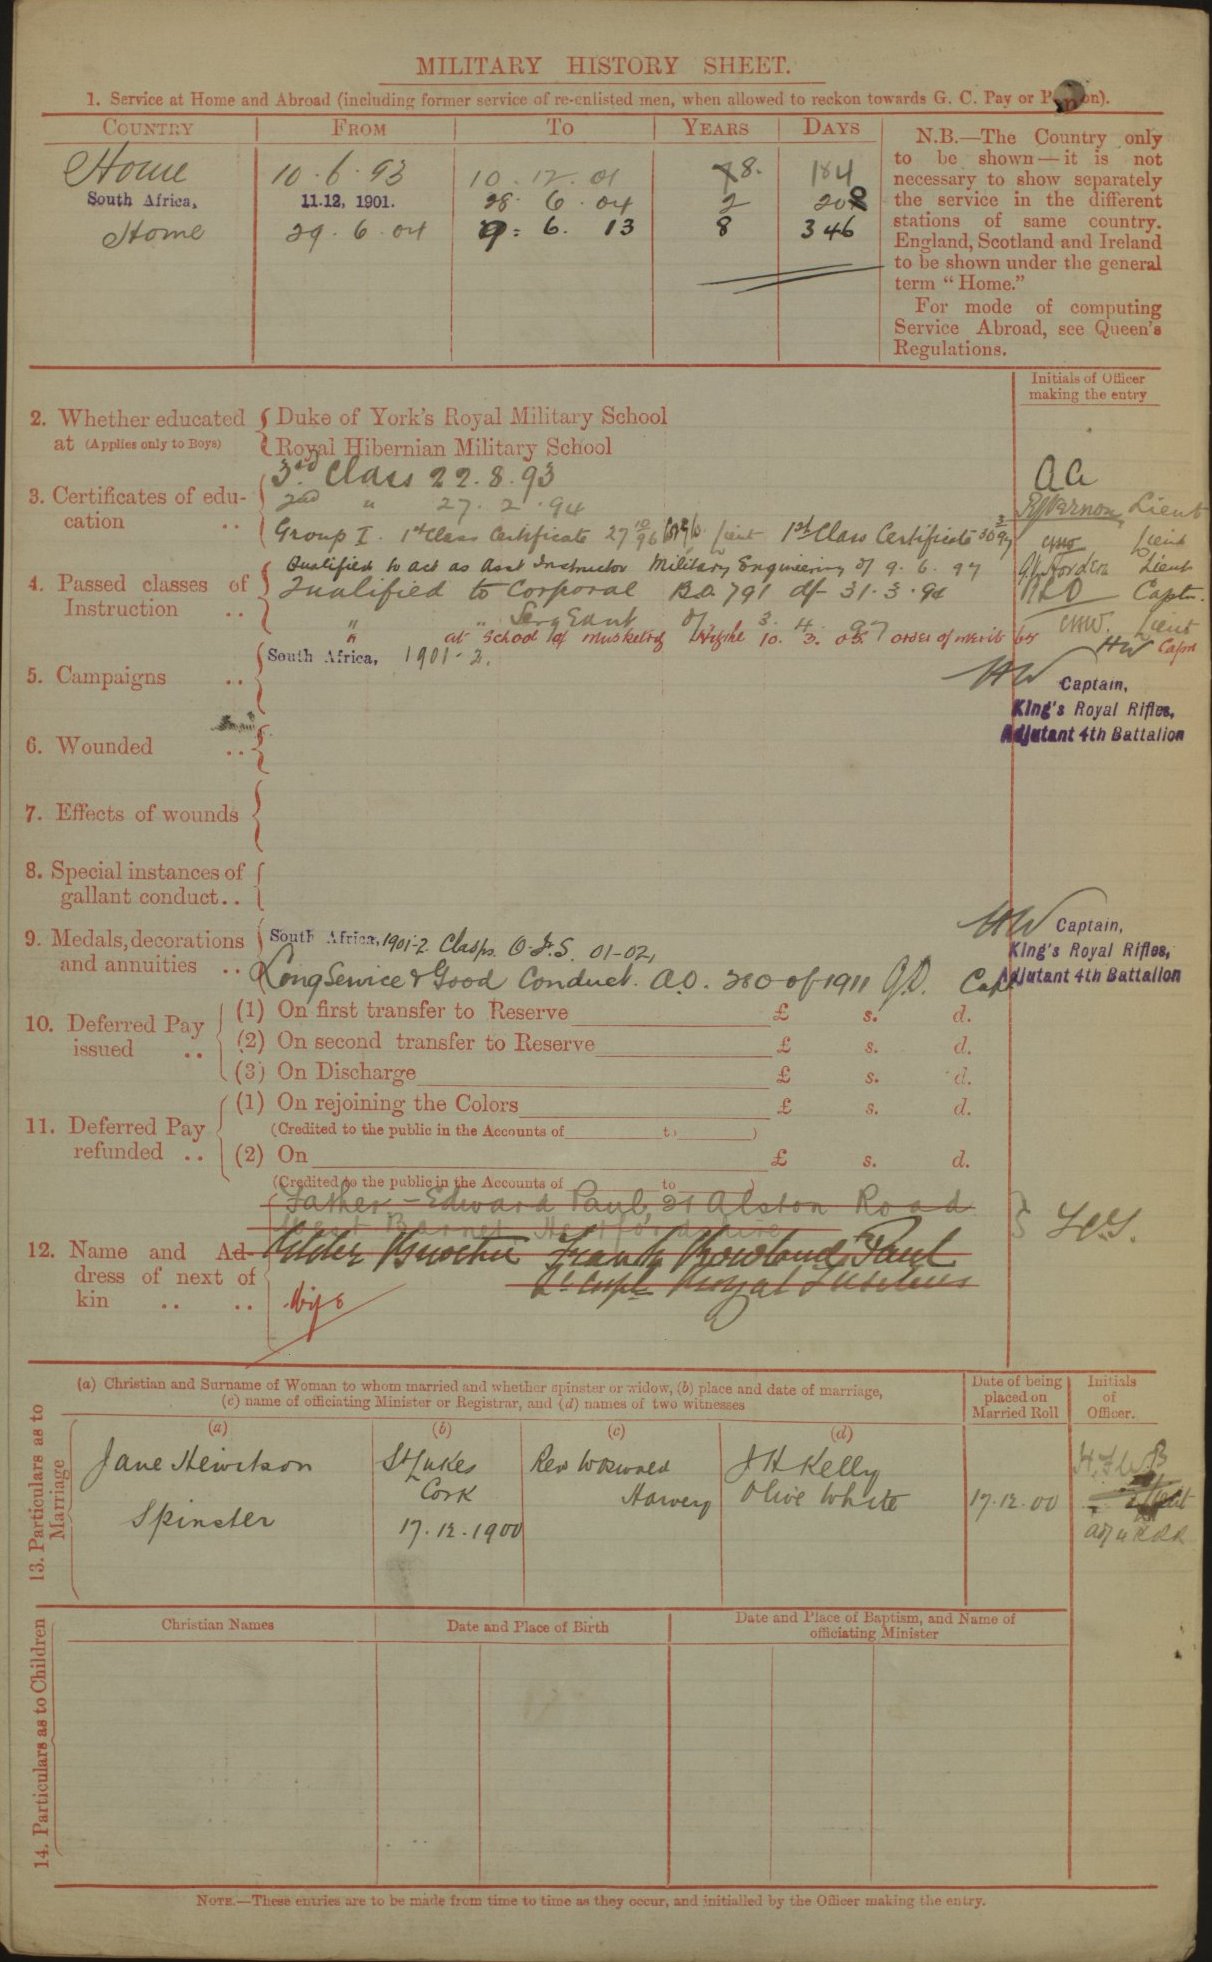 MILITARY HISTORY SHEET.
1. Service at Home and Abroad (including former service of re-enlisted men, when allowed to reckon towards G. C. Pay or P on).
COUNTRY FROM TO YEARS DAYS
Home 10.6.93 10.12.01 8. 184
South Africa, 11.12, 1901. 28.6.04 2 202
Home 29.6.04 9.6.13 8 346
N.B.—The Country only
to be shown—it is not
necessary to show separately
the service in the different
stations of same country.
England, Scotland and Ireland
to be shown under the general
term "Home."
For mode of computing
Service Abroad, see Queen's
Regulations.
Initials of Officer
making the entry
2. Whether educated
at (Applies only to Boys)
Duke of York's Royal Military School
Royal Hibernian Military School
3. Certificates of edu-
cation ..
3rd Class 22.8.93
2nd " 27.2.94 Lieut
Group I. 1st Class Certificate 27 10/96 Lieut 1st Class Certificate 30 3/97 Lieut
4. Passed classes of
Instruction ..
Qualified to act as Asst Instructor Military Engineering of 9.6.97 Lieut
Qualified to Corporal B.O. 791 df 31.3.98 Captn.
" " Sergeant of 3.4.97 Lieut
" at School of Musketry Hythe 10.3.05 order of merit HW Capn
5. Campaigns ..
South Africa, 1901-2.
HW Captain,
King's Royal Rifles,
Adjutant 4th Battalion
6. Wounded ..
7. Effects of wounds
8. Special instances of
gallant conduct..
9. Medals, decorations
and annuities ..
South Africa, 1901-2 Clasps O.F.S. 01-02,
Long Service & Good Conduct. A.O. 280 of 1911 Capt
HW Captain,
King's Royal Rifles,
Adjutant 4th Battalion
10. Deferred Pay
issued ..
(1) On first transfer to Reserve £ s. d.
(2) On second transfer to Reserve £ s. d.
(3) On Discharge £ s. d.
11. Deferred Pay
refunded ..
(1) On rejoining the Colors £ s. d.
(Credited to the public in the Accounts of to )
(2) On £ s. d.
(Credited to the public in the Accounts of to )
12. Name and Ad-
dress of next of
kin .. ..
Father - Edward Paul, 21 Alston Road
Barnet Hertfordshire
Elder Brother Frank Rowland Paul
Royal Fusiliers
Wife
13. Particulars as to
Marriage
(a) Christian and Surname of Woman to whom married and whether spinster or widow, (b) place and date of marriage,
(c) name of officiating Minister or Registrar, and (d) names of two witnesses
Date of being
placed on
Married Roll
Initials
of
Officer.
(a) (b) (c) (d)
Jane Hewitson St Lukes Rev J H Kelly
Cork Harvey Olive White 17.12.00
Spinster 17.12.1900
14. Particulars as to Children
Christian Names Date and Place of Birth Date and Place of Baptism, and Name of
officiating Minister
NOTE.—These entries are to be made from time to time as they occur, and initialled by the Officer making the entry.